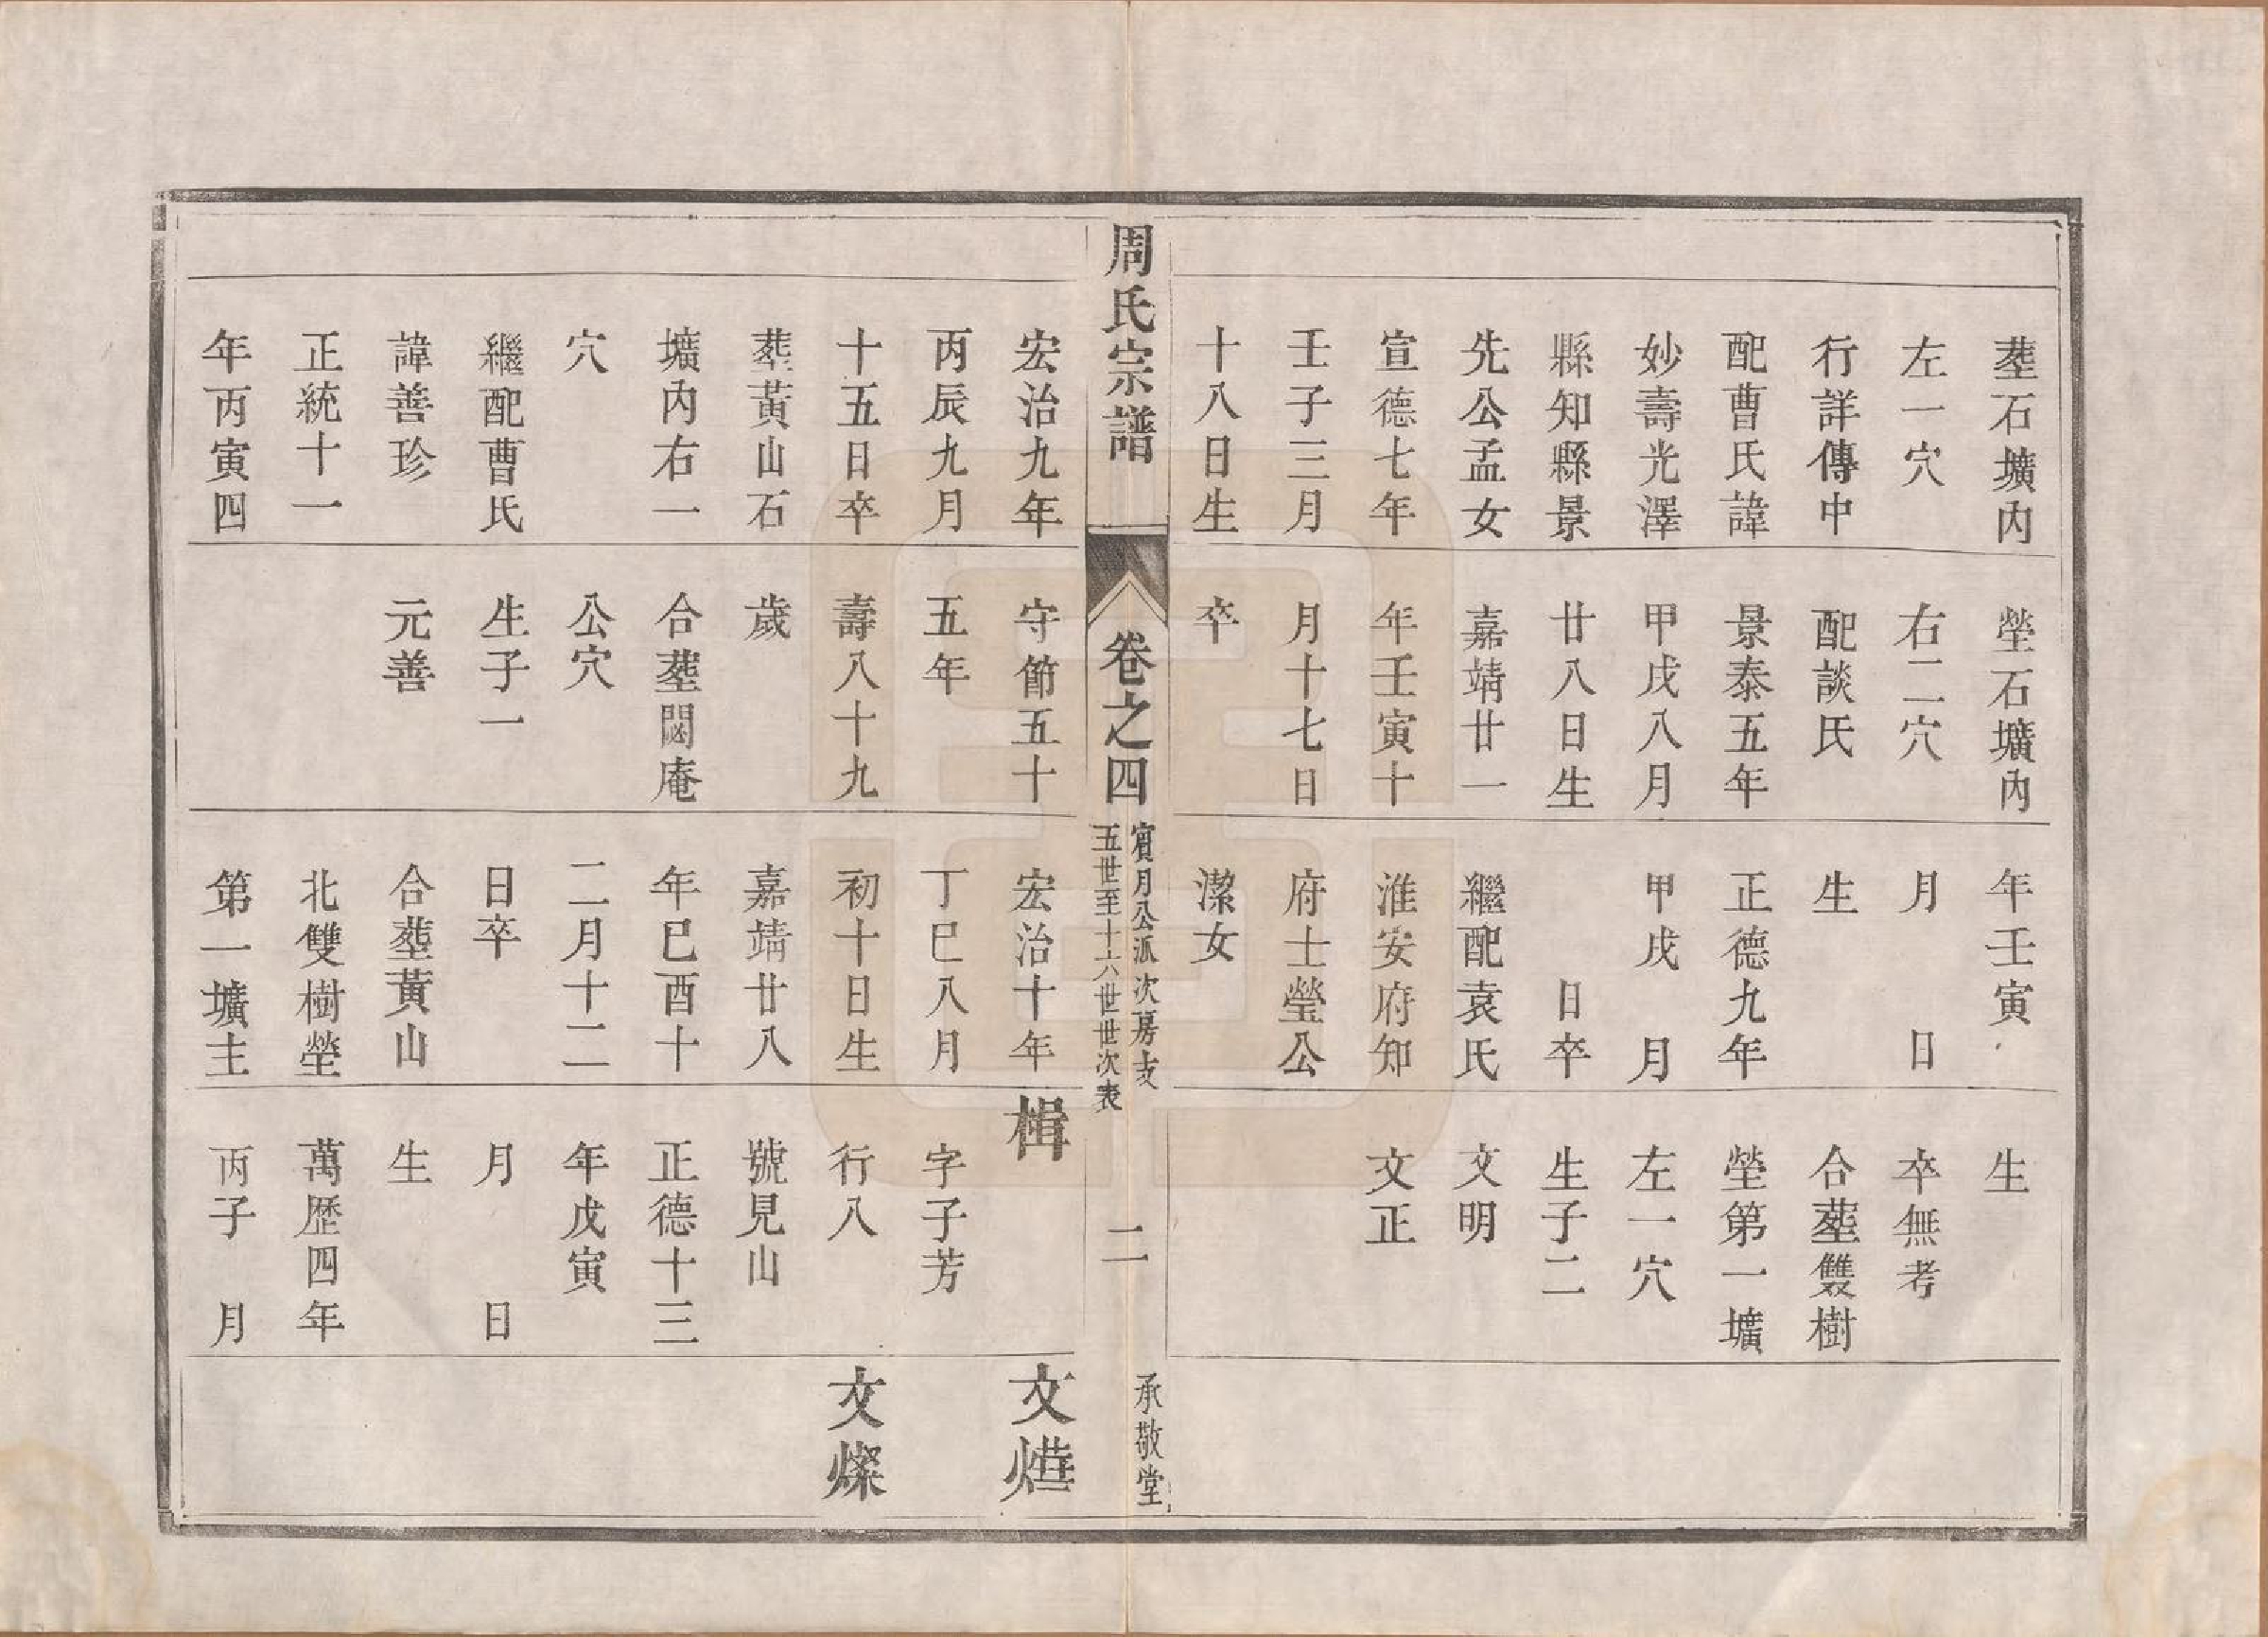 塟石壙內
左一穴
行詳傳中
配曹氏諱
妙壽光澤
縣知縣景
先公孟女
宣德七年
壬子三月
十八日生
塋石壙內
右二穴
配談氏
景泰五年
甲戌八月
廿八日生
嘉靖廿一
年壬寅十
月十七日
卒
年壬寅
月　日
生
正德九年
甲戌　月
日卒
繼配袁氏
淮安府知
府士瑩公
潔女
生
卒無考
合塟雙樹
塋第一壙
左一穴
生子二
文明
文正
周氏宗譜
卷之四
賓月公派次房支
五世至十六世世次表
二
承敬堂
宏治九年
丙辰九月
十五日卒
塟黃山石
壙內右一
穴
繼配曹氏
諱善珍
正統十一
年丙寅四
守節五十
五年
壽八十九
歲
合塟閟庵
公穴
生子一
元善
宏治十年
丁巳八月
初十日生
嘉靖廿八
年巳酉十
二月十二
日卒
合塟黃山
北雙樹塋
第一壙主
楫
字子芳
行八
號見山
正德十三
年戊寅
月　日
生
萬歷四年
丙子　月
文燁
文燦